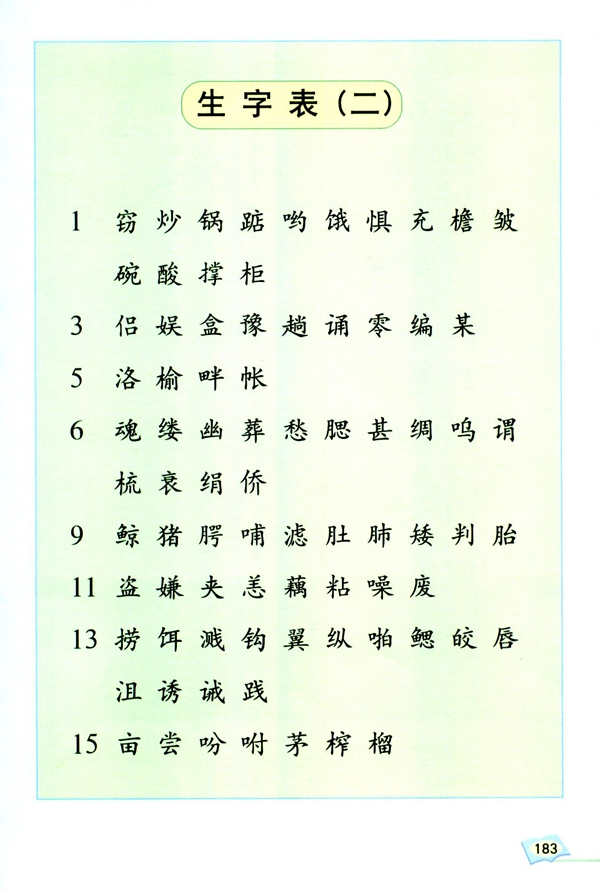 生字表(二)
1 窃 炒 锅 踮 哟 饿 惧 充 檐 皱
碗 酸 撑 柜
3 侣 娱 盒 豫 趟 诵 零 编 某
5 洛 榆 畔 帐
6 魂 缕 幽 葬 愁 腮 甚 绸 呜 谓
梳 衰 绢 侨
9 鲸 猪 腭 哺 滤 肚 肺 矮 判 胎
11 盗 嫌 夹 恙 藕 粘 噪 废
13 捞 饵 溅 钩 翼 纵 啪 鳃 皎 唇
沮 诱 诫 践
15 亩 尝 吩 咐 茅 榨 榴
183